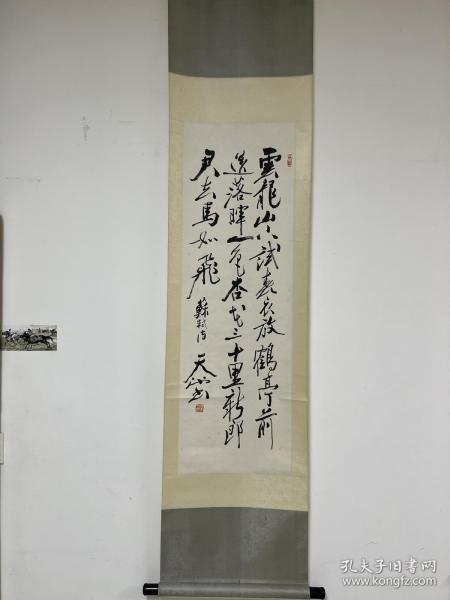 雲龍山下試春衣放鶴亭前
送落暉一色杏花三十里新郎
君去馬如飛
蘇軾詩
天
孔夫子旧书网
www.kongfz.com